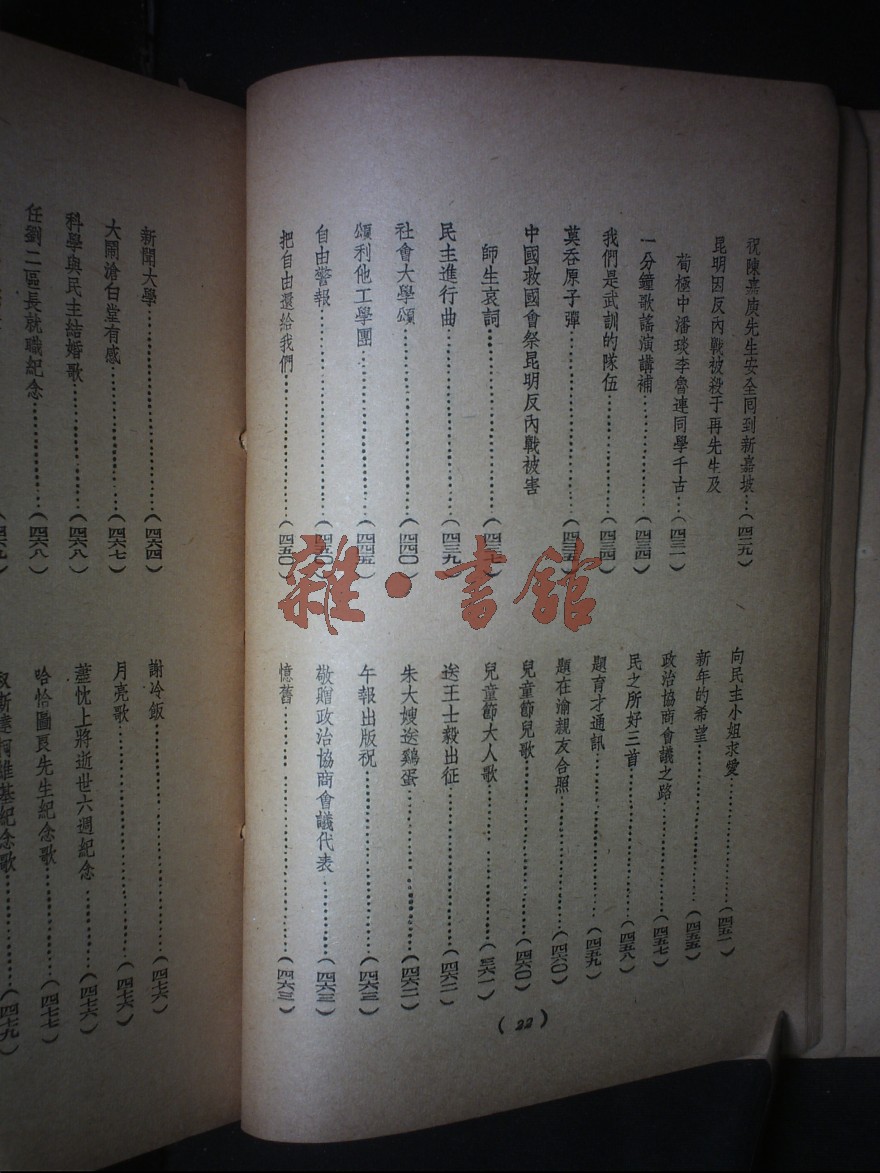 祝陳嘉庚先生安全囘到新嘉坡…(四二九)
昆明因反內戰被殺于再先生及
荀極中潘琰李魯連同學千古…(四三一)
一分鐘歌謠演講補…(四三四)
我們是武訓的隊伍…(四三四)
莫吞原子彈…(四三五)
中國救國會祭昆明反內戰被害
師生哀詞…(四三七)
民主進行曲…(四三九)
社會大學頌…(四四〇)
頌利他工學團…(四四五)
自由警報…(四五〇)
把自由還給我們…(四五〇)
向民主小姐求愛…(四五一)
新年的希望…(四五五)
政治協商會議之路…(四五七)
民之所好三首…(四五八)
題育才通訊…(四五九)
題在渝親友合照…(四六〇)
兒童節兒歌…(四六〇)
兒童節大人歌…(三六一)
送王士毅出征…(四六二)
朱大嫂送鷄蛋…(四六二)
午報出版祝…(四六三)
敬贈政治協商會議代表…(四六三)
憶舊…(四六三)
(22)
新聞大學…(四六四)
大鬧滄白堂有感…(四六七)
科學與民主結婚歌…(四六八)
任劉二區長就職紀念…(四六八)
謝冷飯…(四七六)
月亮歌…(四七六)
藎忱上將逝世六週紀念…(四七六)
哈恰圖良先生紀念歌…(四七七)
紀念歌…(四七九)
雜·書館